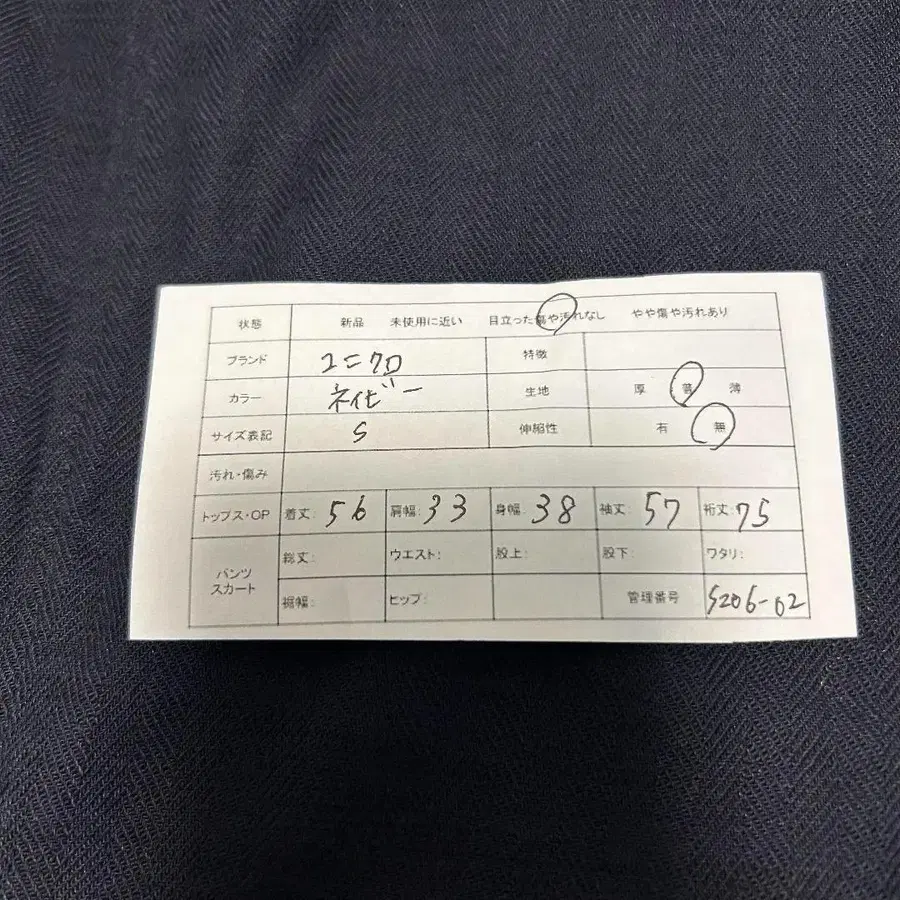 状態 新品 未使用に近い 目立った傷や汚れなし やや傷や汚れあり
ブランド ユニクロ 特徴
カラー ネイビー 生地 厚 普 薄
サイズ表記 S 伸縮性 有 無
汚れ・傷み
トップス・OP 着丈: 56 肩幅: 33 身幅: 38 袖丈: 57 裄丈: 75
パンツ スカート 総丈: ウエスト: 股上: 股下: ワタリ:
裾幅: ヒップ: 管理番号 S206-02